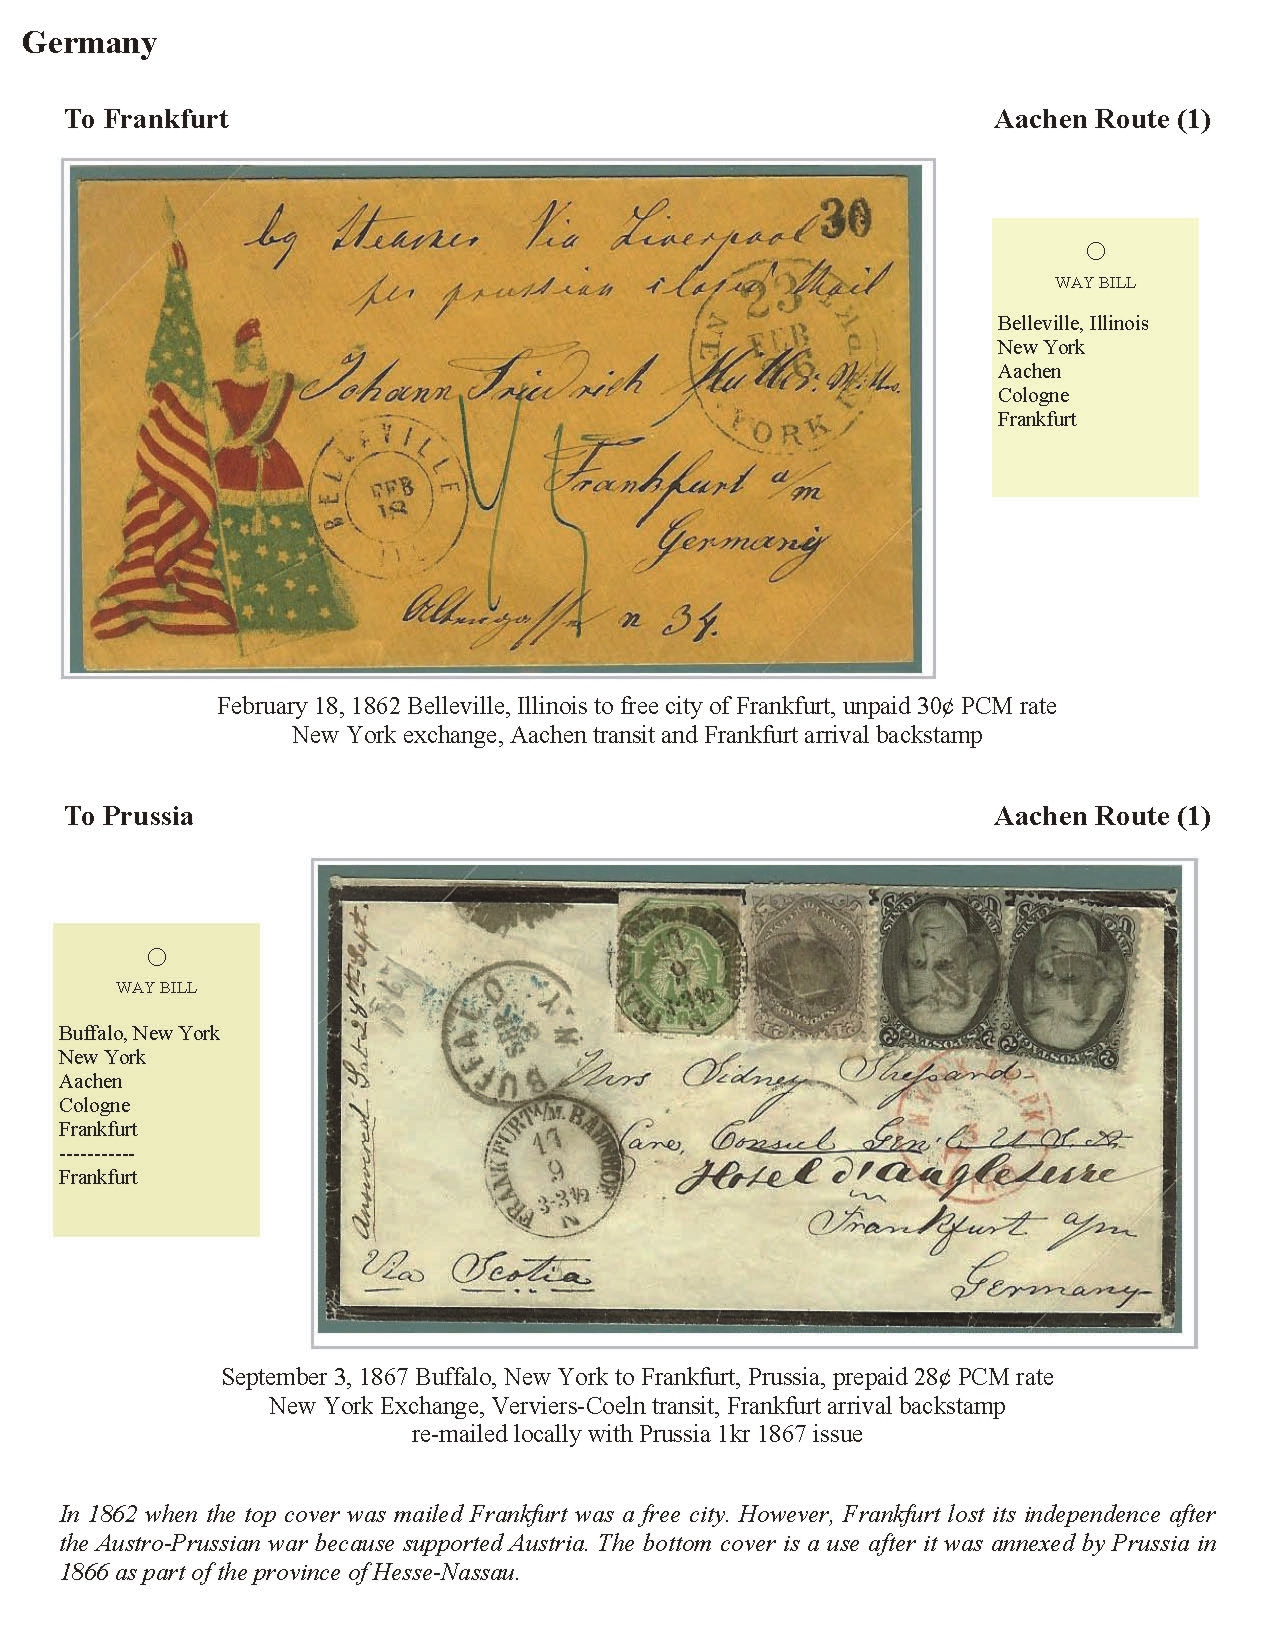 Germany
To Frankfurt
Aachen Route (1)
by Steamer Via Liverpool
30
per prussian closed Mail
23
FEB
YORK
Johann Friedrich
BELLEVILLE
FEB
18
ILL
45
Frankfurt a/m
Germany
n 34.
WAY BILL
Belleville, Illinois
New York
Aachen
Cologne
Frankfurt
February 18, 1862 Belleville, Illinois to free city of Frankfurt, unpaid 30¢ PCM rate
New York exchange, Aachen transit and Frankfurt arrival backstamp
To Prussia
Aachen Route (1)
WAY BILL
Buffalo, New York
New York
Aachen
Cologne
Frankfurt
-----------
Frankfurt
Answered
Sept.
BUFFALO
N.Y.
Mrs Sidney Shepard
Care, Consul Gen'l U.S.A
Hotel d'angleterre
in
Frankfurt a/m
Germany
FRANKFURT A/M. BAHNHOF
17
9
3-3½
N
Via Scotia
September 3, 1867 Buffalo, New York to Frankfurt, Prussia, prepaid 28¢ PCM rate
New York Exchange, Verviers-Coeln transit, Frankfurt arrival backstamp
re-mailed locally with Prussia 1kr 1867 issue
In 1862 when the top cover was mailed Frankfurt was a free city. However, Frankfurt lost its independence after
the Austro-Prussian war because supported Austria. The bottom cover is a use after it was annexed by Prussia in
1866 as part of the province of Hesse-Nassau.